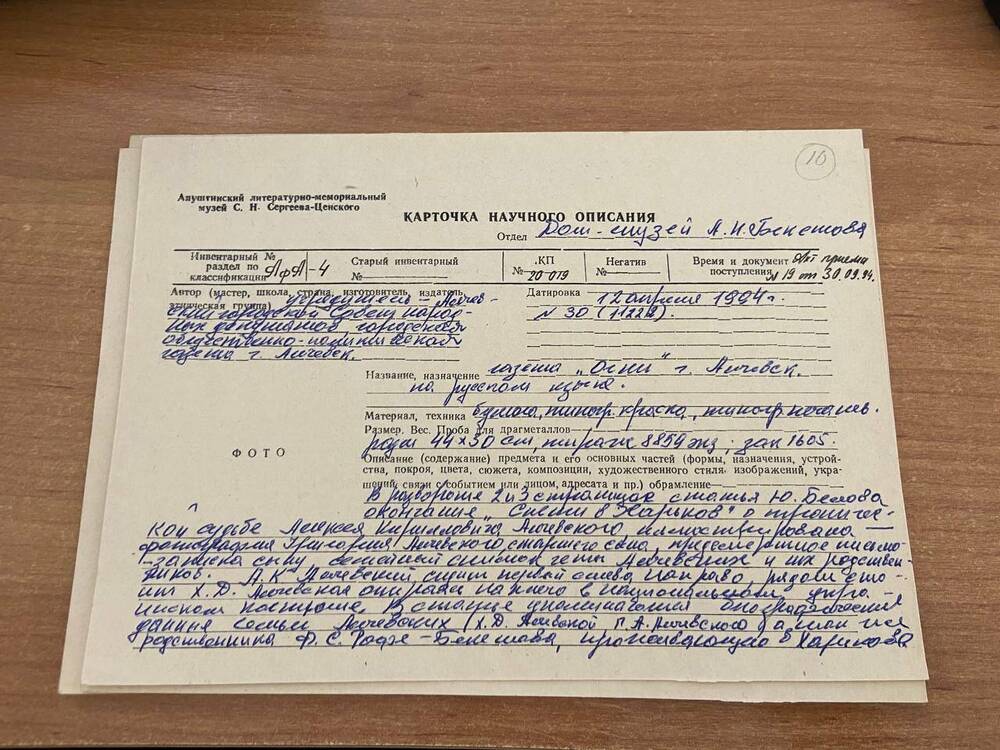 10
Алуштинский литературно-мемориальный
музей С. Н. Сергеева-Ценского
КАРТОЧКА НАУЧНОГО ОПИСАНИЯ
Отдел Дом-музей А.Н.Бекетова
Инвентарный №
раздел по
классификации АфА-4
Старый инвентарный
№
КП
№ 20 019
Негатив
№
Время и документ Акт приема
поступления № 19 от 30.09.94.
Автор (мастер, школа, страна, изготовитель, издатель,
этническая группа) учредитель – Алчев-
ский городской Совет народ-
ных депутатов городская
общественно-политическая
газета г. Алчевск.
Датировка 12 апреля 1994г.
№ 30
Название, назначение газета „Огни" г. Алчевск.
на русском языке.
Материал, техника бумага, типогр. краска, типогр. печать.
Размер. Вес. Проба для драгметаллов
разм 44×30 см, тираж 8859 экз; зак 1605.
ФОТО
Описание (содержание) предмета и его основных частей (формы, назначения, устрой-
ства, покроя, цвета, сюжета, композиции, художественного стиля, изображений, укра-
шений, связи с событием или лицом, адресата и пр.) обрамление
В развороте 2 и 3 страницах статья Ю. Белова
окончание „Спеши в Харьков" о трагичес-
кой судьбе Алексея Кирилловича Алчевского иллюстрирована
фотография Григория Алчевского старшего сына, предсмертное письмо-
записка сыну, семейный снимок четы Алчевских и их родствен-
ников. А.К. Алчевский сидит первый слева направо, рядом сто-
ит Х.Д. Алчевская в национальном укра-
инском костюме. В статье упоминаются биографические
данные семьи Алчевских (Х.Д. Алчевской, Г.А. Алчевского) а также
родственника Ф.С. Рофе-Бекетова, проживающего в Харькове